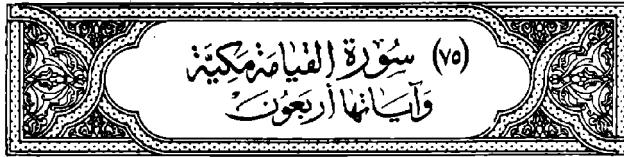 (٧٥) سُورَة القِيَامَة مَكِيَّة
وَآيَاتُهَا أَرْبَعُونَ